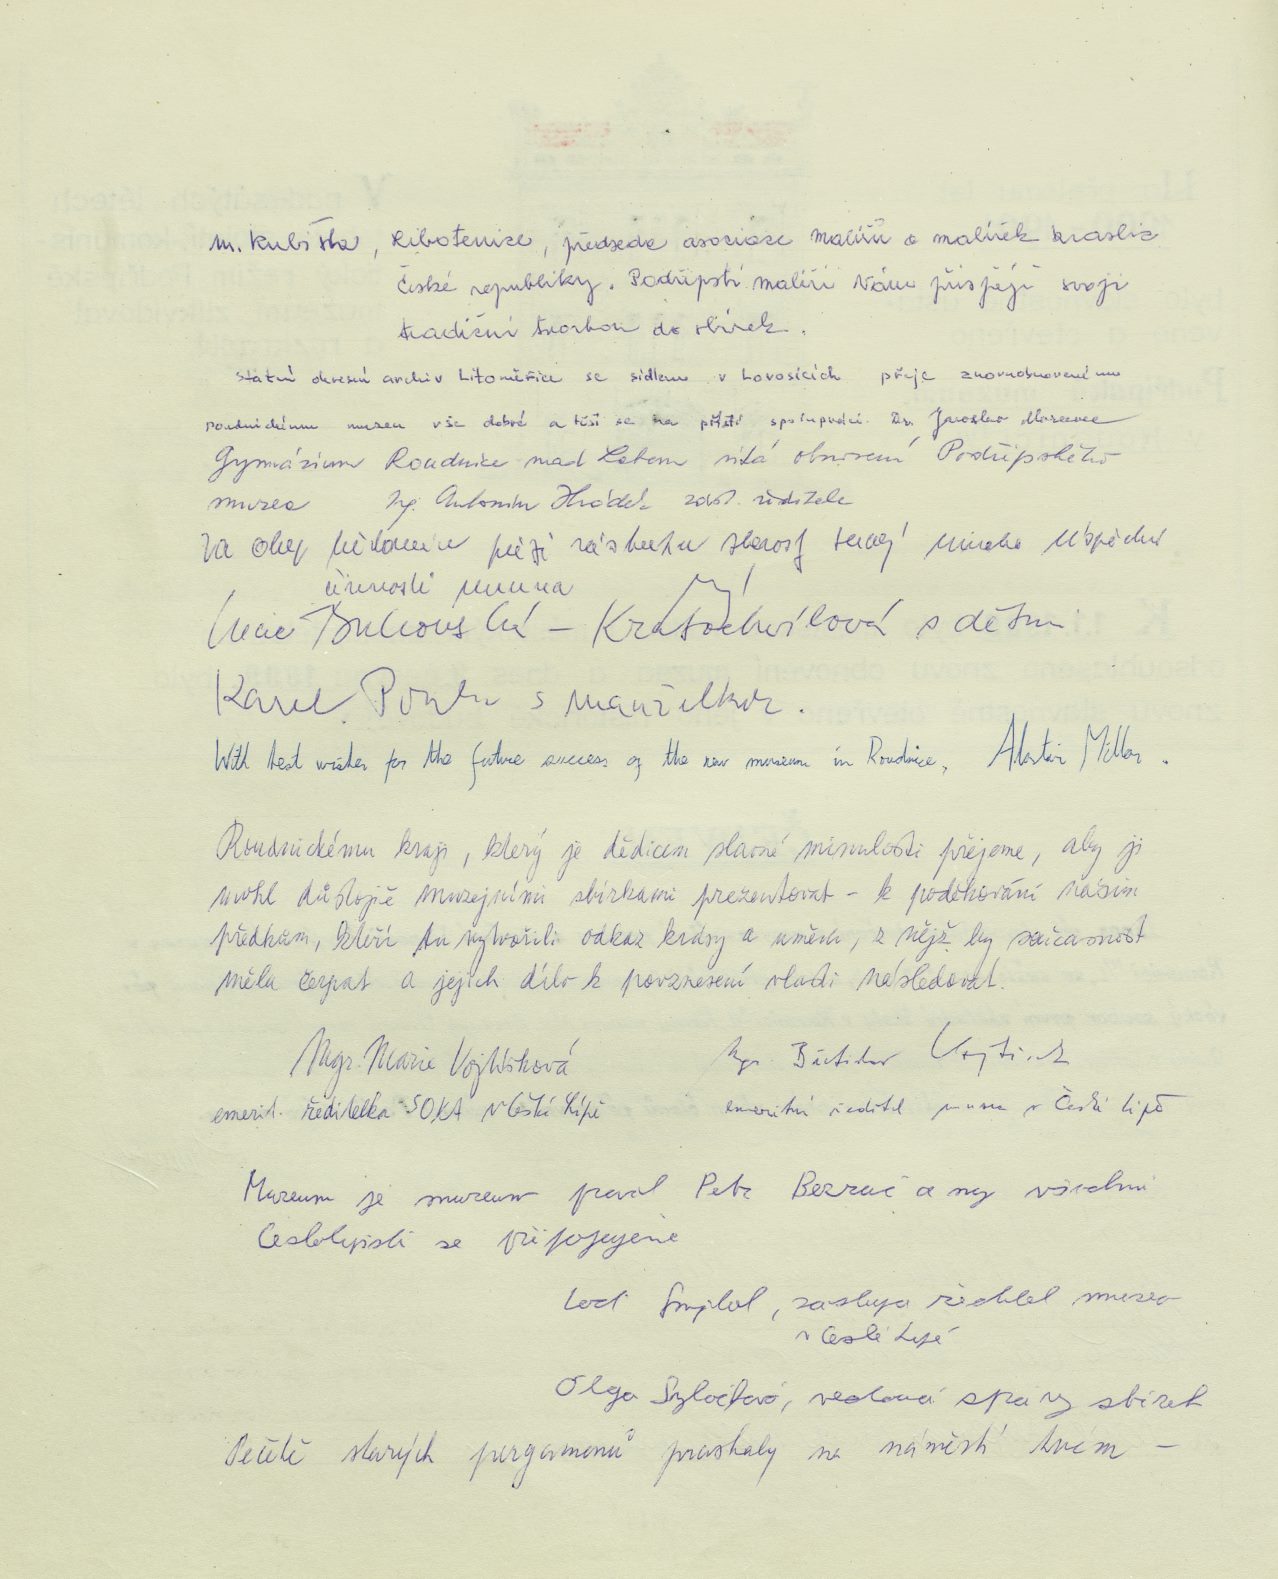 M. Kubíška, Libotenice, předseda asociace malířů a malířek kraslic
České republiky. Podřipští malíři Vám přispějí svoji
tradiční tvorbou do sbírek.
Státní okresní archiv Litoměřice se sídlem v Lovosicích přeje znovuobnovenému
roudnickému muzeu vše dobré a těší se na příští spolupráci. Dr. Jaroslav
Gymnázium Roudnice nad Labem vítá obnovení Podřipského
muzea Ing. Antonín Hrádek zást. ředitele
Za obec přeji mnoho úspěchů
činnosti muzea
– Kratochvílová s dětmi
Karel s manželkou.
With best wishes for the future success of the new museum in Roudnice, Alastair Millar.
Roudnickému kraji, který je dědicem slavné minulosti přejeme, aby ji
mohl důstojně muzejními sbírkami prezentovat – k poděkování našim
předkům, kteří tu vytvořili odkaz krásy a umění, z nějž by současnost
měla čerpat a jejich dílo k povznesení vlasti následovat.
Mgr. Marie Vojtíšková Mgr. Břetislav Vojtíšek
emerit. ředitelka SOKA v České Lípě emeritní ředitel muzea v České Lípě
Muzeum je muzeum pravil Petr Bezruč a my všichni
Českolipští se připojujeme
Smejkal, zástupce ředitel muzea
v České Lípě
Olga vedoucí správy sbírek
Pečetě starých pergamenů praskaly na náměstí tvém –